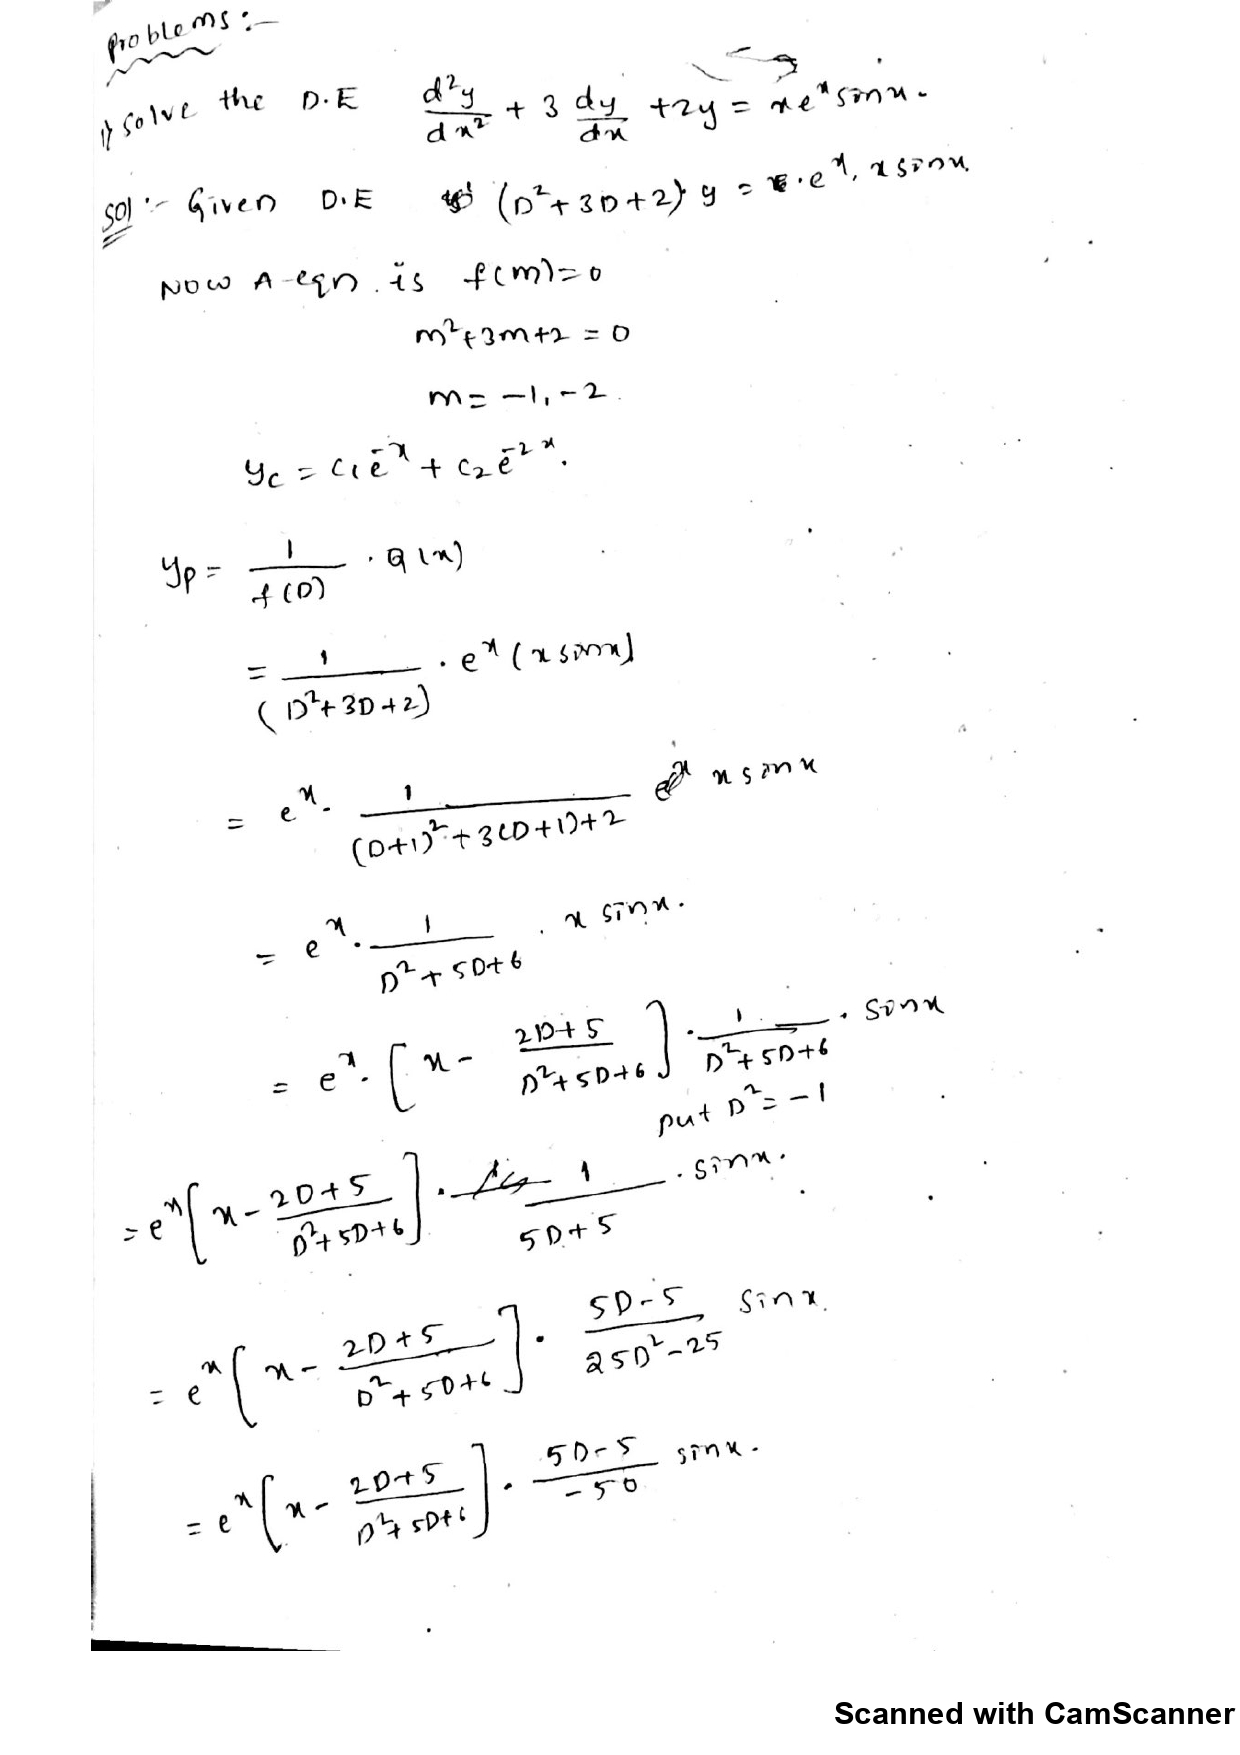 Problems :-
1) Solve the D.E d²y/dx² + 3 dy/dx + 2y = xeˣ sinx.
Sol :- Given D.E (D²+3D+2) y = eˣ. x sinx.
NOW A-eqn. is f(m)=0
m²+3m+2 = 0
m = -1, -2.
y_c = c₁e⁻ˣ + c₂e⁻²ˣ.
y_p = 1/f(D) . Q(x)
= 1/(D²+3D+2) . eˣ (x sinx)
= eˣ. 1/((D+1)²+3(D+1)+2) x sinx
= eˣ. 1/(D²+5D+6) . x sinx.
= eˣ. [x - (2D+5)/(D²+5D+6)] . 1/(D²+5D+6) . sinx
put D² = -1
= eˣ [x - (2D+5)/(D²+5D+6)] . 1/(5D+5) . sinx.
= eˣ [x - (2D+5)/(D²+5D+6)] . (5D-5)/(25D²-25) sinx.
= eˣ [x - (2D+5)/(D²+5D+6)] . (5D-5)/(-50) sinx.
Scanned with CamScanner